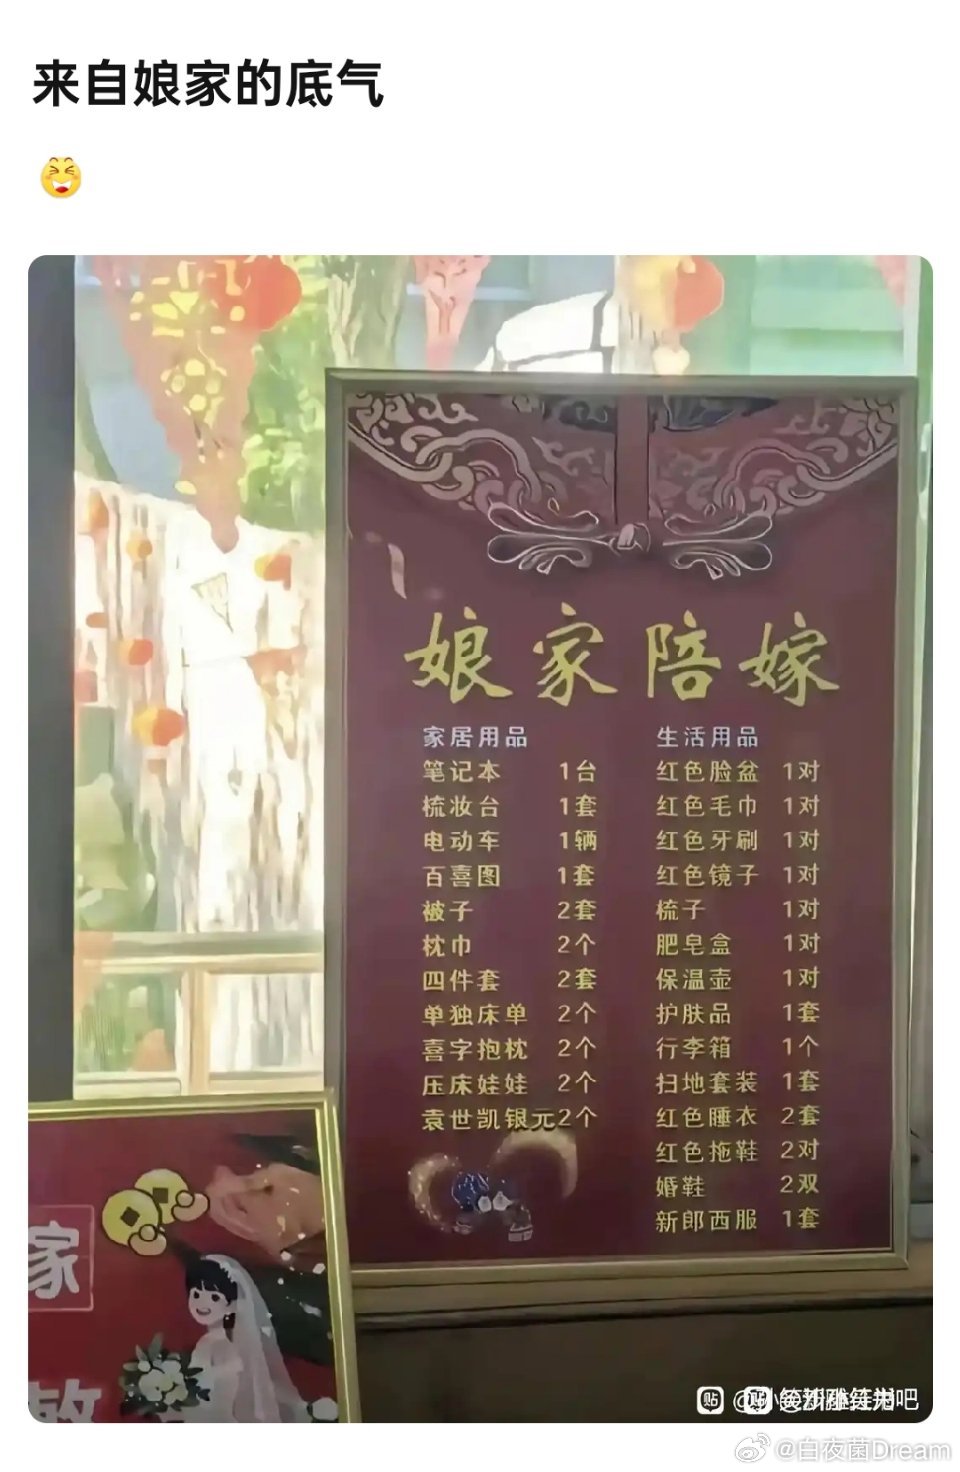 来自娘家的底气
娘家陪嫁
家居用品
笔记本 1台
梳妆台 1套
电动车 1辆
百喜图 1套
被子 2套
枕巾 2个
四件套 2套
单独床单 2个
喜字抱枕 2个
压床娃娃 2个
袁世凯银元2个
生活用品
红色脸盆 1对
红色毛巾 1对
红色牙刷 1对
红色镜子 1对
梳子 1对
肥皂盒 1对
保温壶 1对
护肤品 1套
行李箱 1个
扫地套装 1套
红色睡衣 2套
红色拖鞋 2对
婚鞋 2双
新郎西服 1套
家
贴
@白夜菌Dream